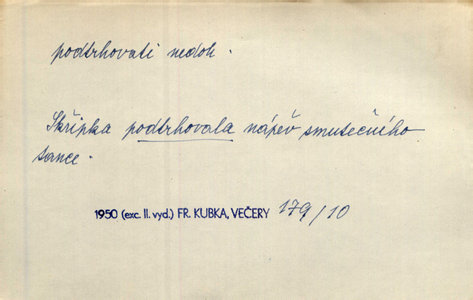 podtrhovati nedok.
Skřipka podtrhovala nápěv smutečního
tance.
1950 (exc. II. vyd.) FR. KUBKA, VEČERY 179/10